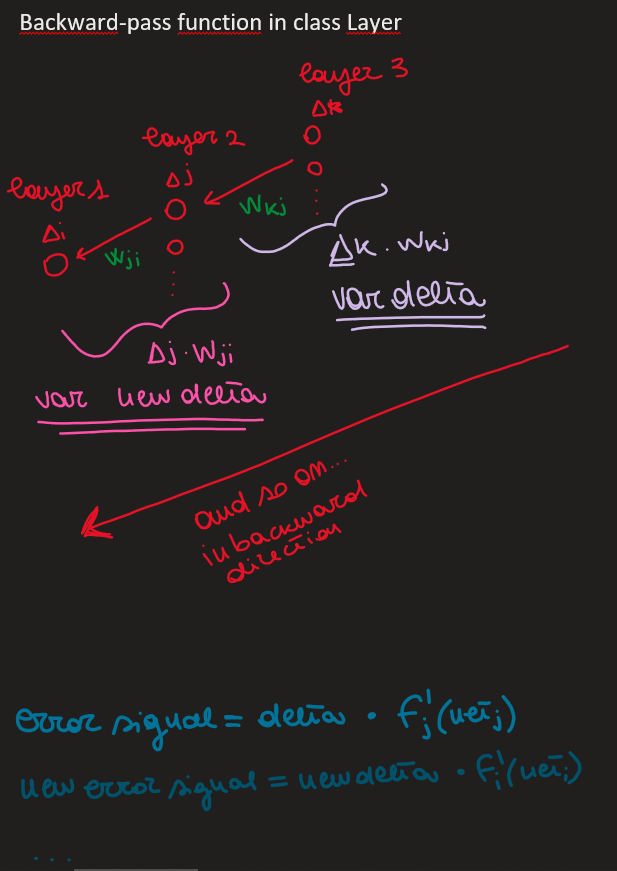 Backward-pass function in class Layer
layer 3
Δk
layer 2
Δj
layer 1
Δi
Wkj
Wji
Δk · Wkj
var delta
Δj · Wji
var new delta
and so on...
in backward
direction
error signal = delta · f'j(netj)
new error signal = new delta · f'i(neti)
...